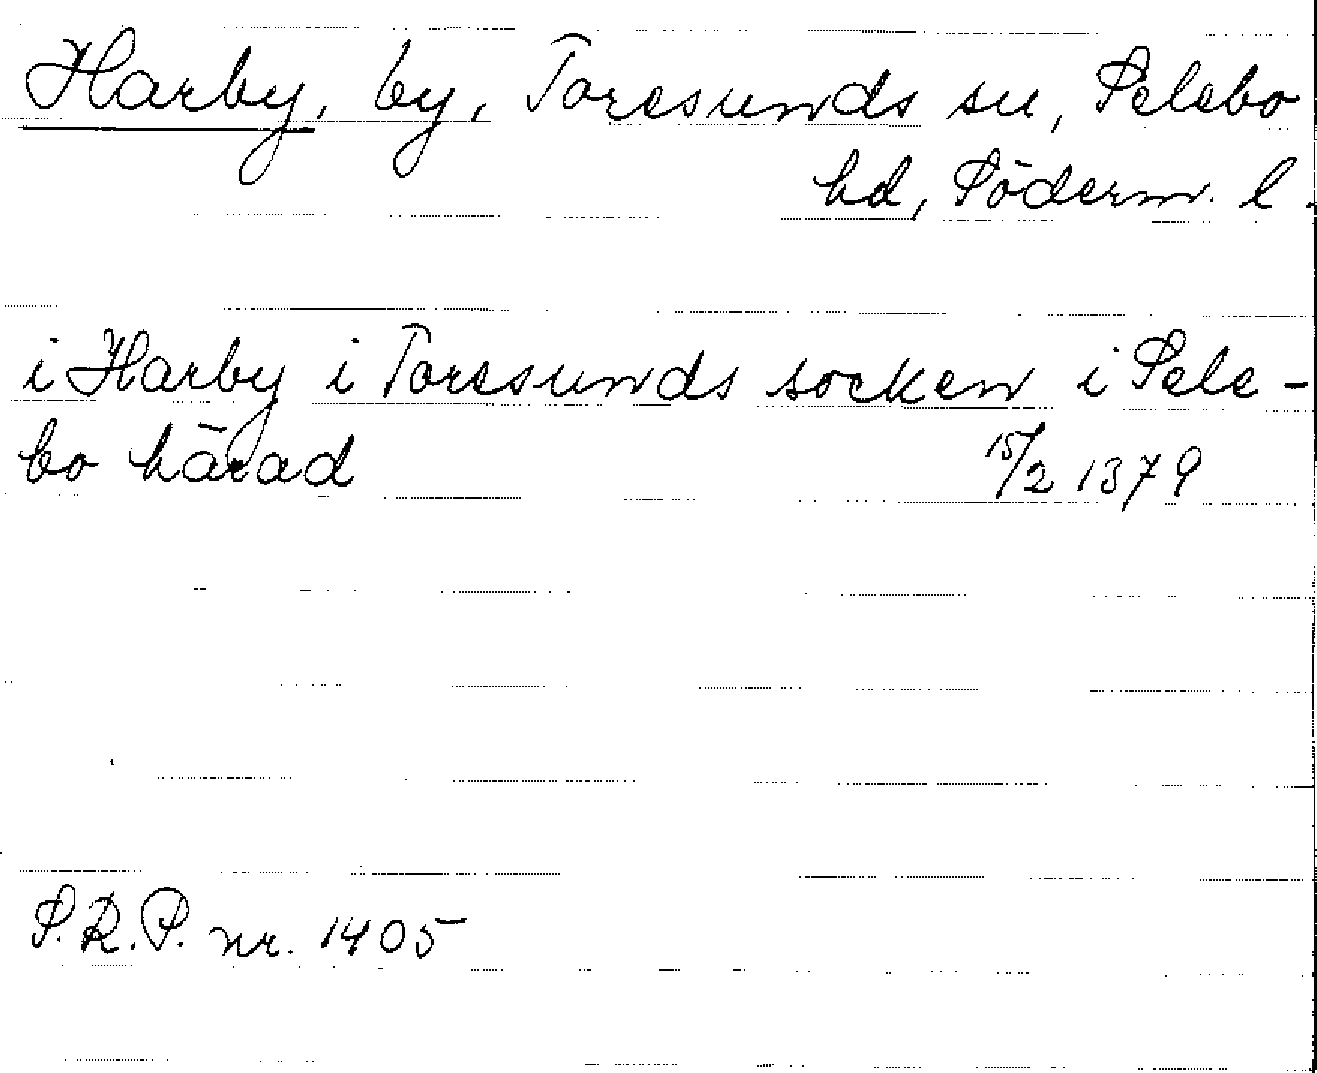 Harby, by, Toresunds sn, Selebo
hd, Söderm. l.
i Harby i Toresunds socken i Sele-
bo härad 15/2 1379
S.R.P. nr. 1405